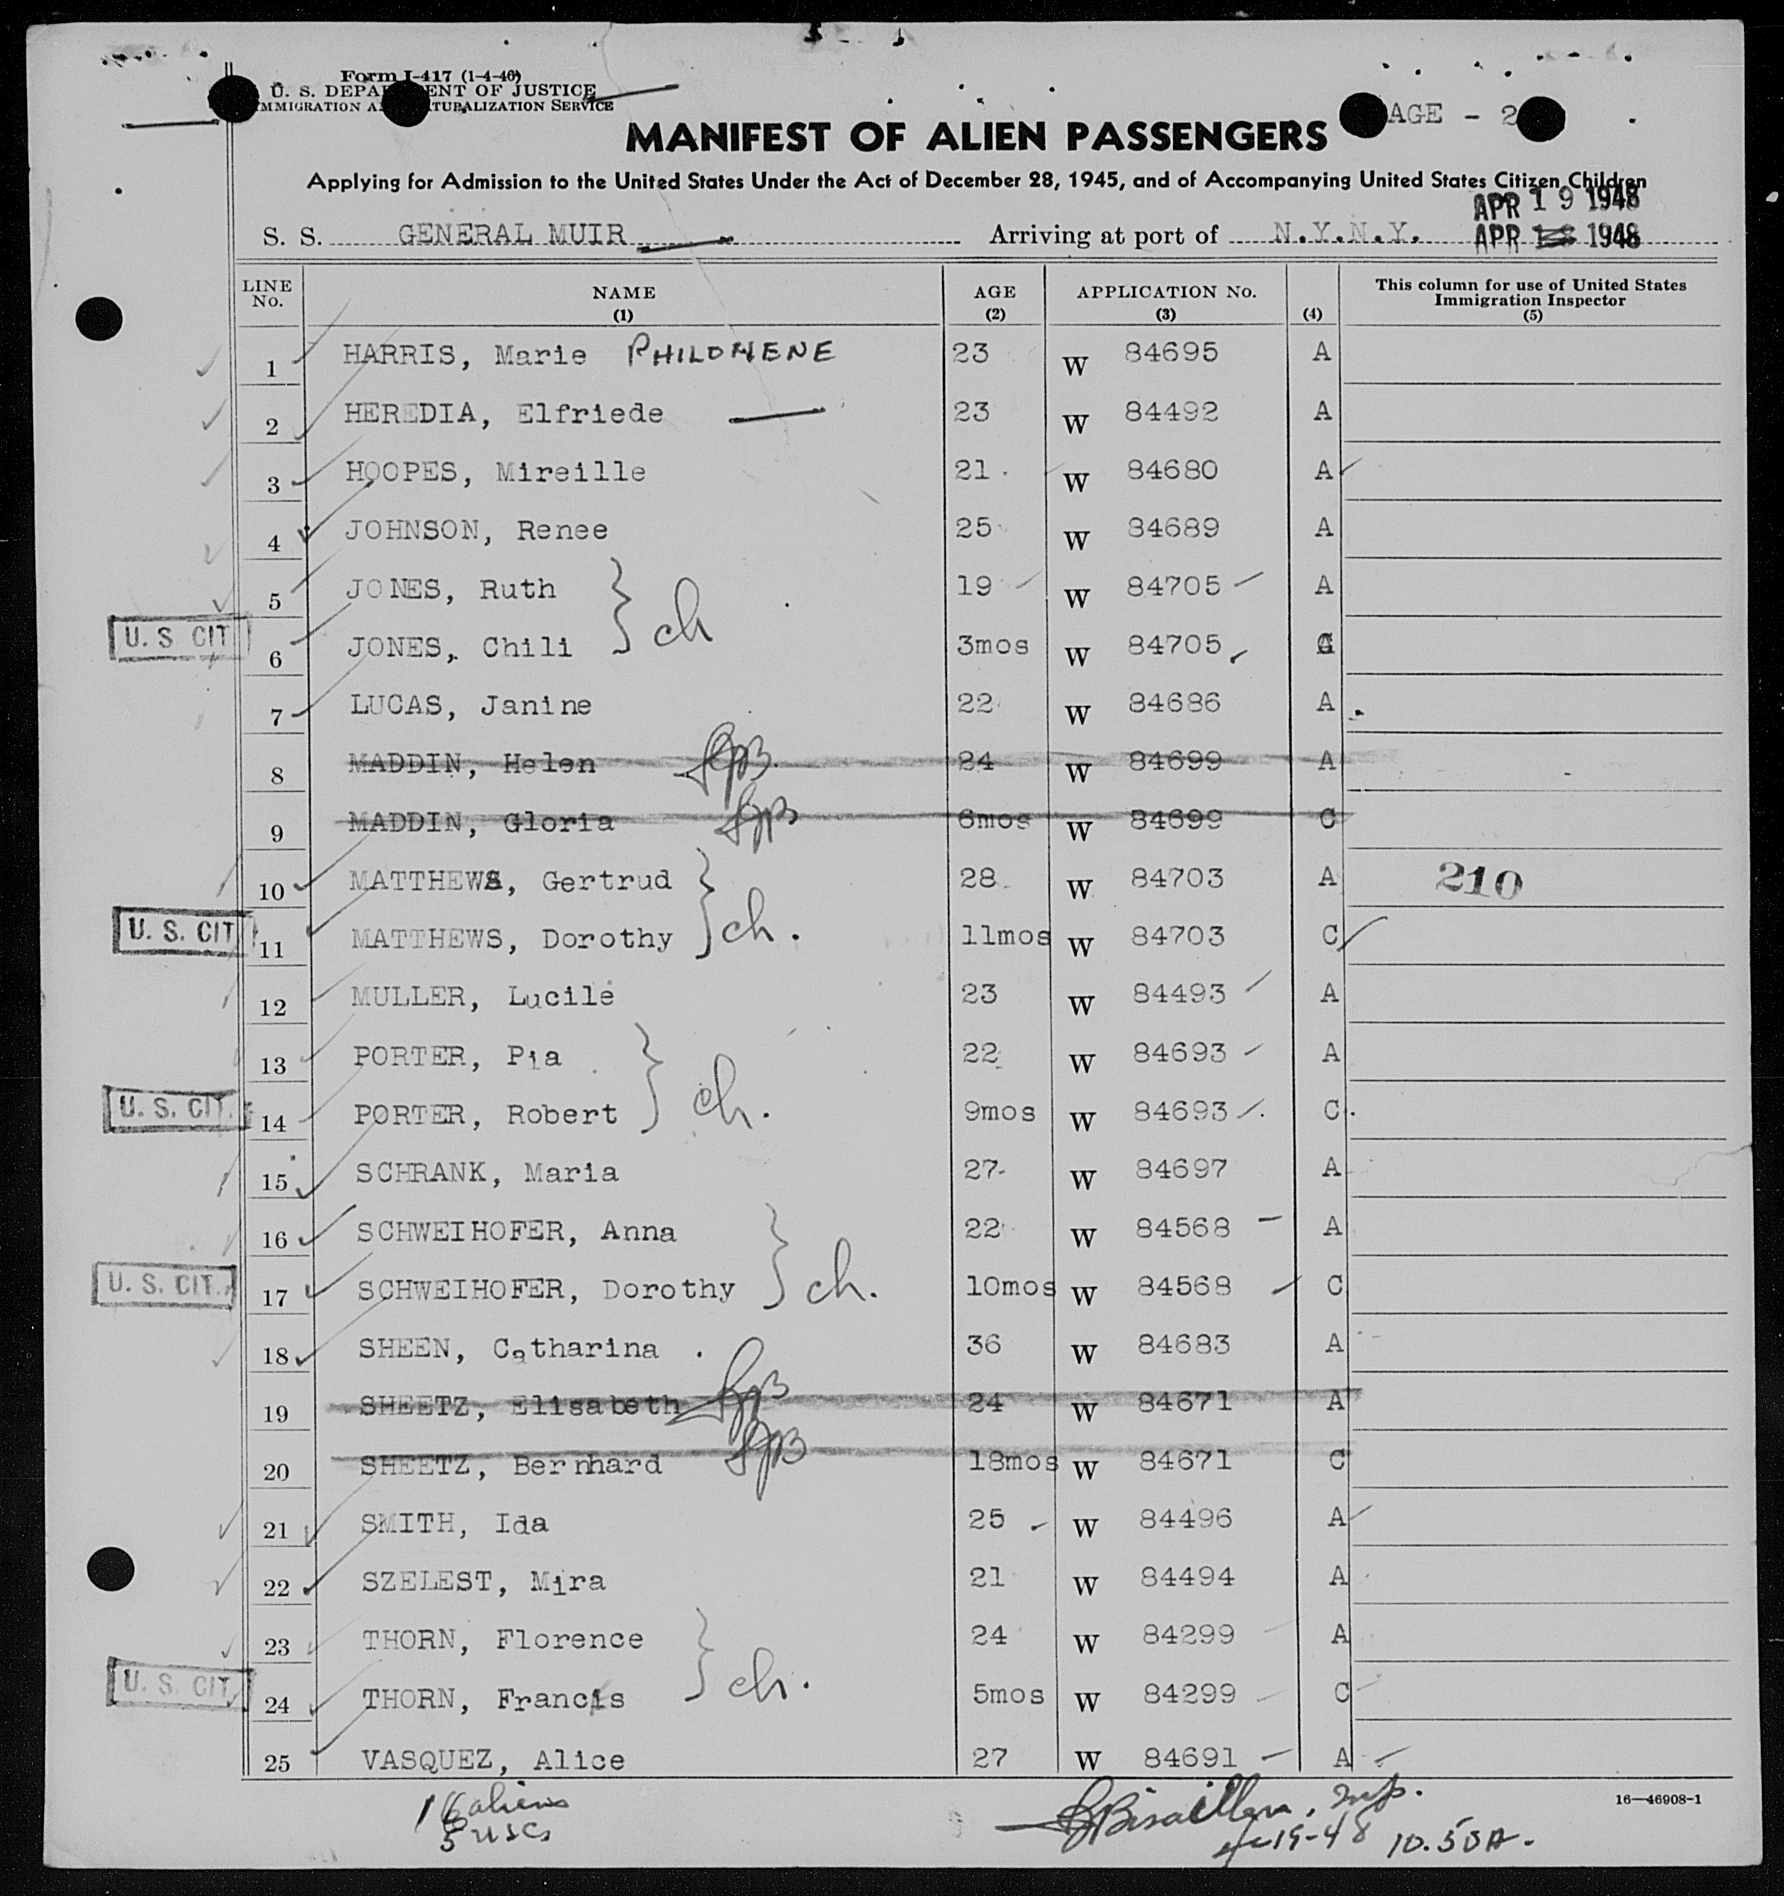 Form I-417 (1-4-46)
U. S. DEPARTMENT OF JUSTICE
IMMIGRATION AND NATURALIZATION SERVICE
AGE - 2
MANIFEST OF ALIEN PASSENGERS
Applying for Admission to the United States Under the Act of December 28, 1945, and of Accompanying United States Citizen Children
APR 19 1948
S. S. GENERAL MUIR Arriving at port of N.Y.N.Y. APR 1948
LINE No. NAME (1) AGE (2) APPLICATION No. (3) (4) This column for use of United States Immigration Inspector (5)
1 HARRIS, Marie PHILOMENE 23 W 84695 A
2 HEREDIA, Elfriede 23 W 84492 A
3 HOOPES, Mireille 21 W 84680 A
4 JOHNSON, Renee 25 W 84689 A
5 JONES, Ruth 19 W 84705 A
U. S CIT 6 JONES, Chili ch 3mos W 84705 C
7 LUCAS, Janine 22 W 84686 A
8 MADDIN, Helen 24 W 84699 A
9 MADDIN, Gloria 6mos W 84699 C
10 MATTHEWS, Gertrud 28 W 84703 A 210
U. S. CIT 11 MATTHEWS, Dorothy ch. 11mos W 84703 C
12 MULLER, Lucile 23 W 84493 A
13 PORTER, Pia 22 W 84693 A
U. S. CIT. 14 PORTER, Robert ch. 9mos W 84693 C
15 SCHRANK, Maria 27 W 84697 A
16 SCHWEIHOFER, Anna 22 W 84568 A
U. S. CIT. 17 SCHWEIHOFER, Dorothy ch. 10mos W 84568 C
18 SHEEN, Catharina 36 W 84683 A
19 SHEETZ, Elisabeth 24 W 84671 A
20 SHEETZ, Bernhard 18mos W 84671 C
21 SMITH, Ida 25 W 84496 A
22 SZELEST, Mira 21 W 84494 A
23 THORN, Florence 24 W 84299 A
U. S. CIT 24 THORN, Francis ch. 5mos W 84299 C
25 VASQUEZ, Alice 27 W 84691 A
16 aliens
5 USCs
Insp.
4-19-48 10.50A.
16—46908-1